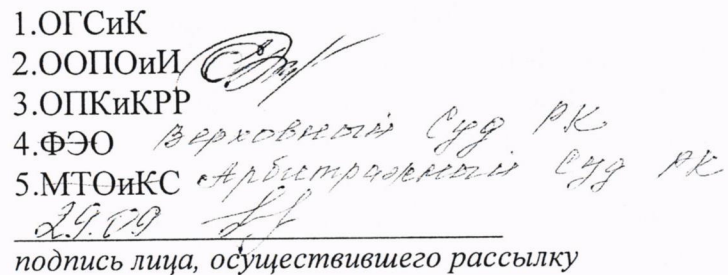 1.ОГСиК
2.ООПОиИ
3.ОПКиКРР
4.ФЭО Верховный Суд РК
5.МТОиКС Арбитражный Суд РК
29.09
подпись лица, осуществившего рассылку